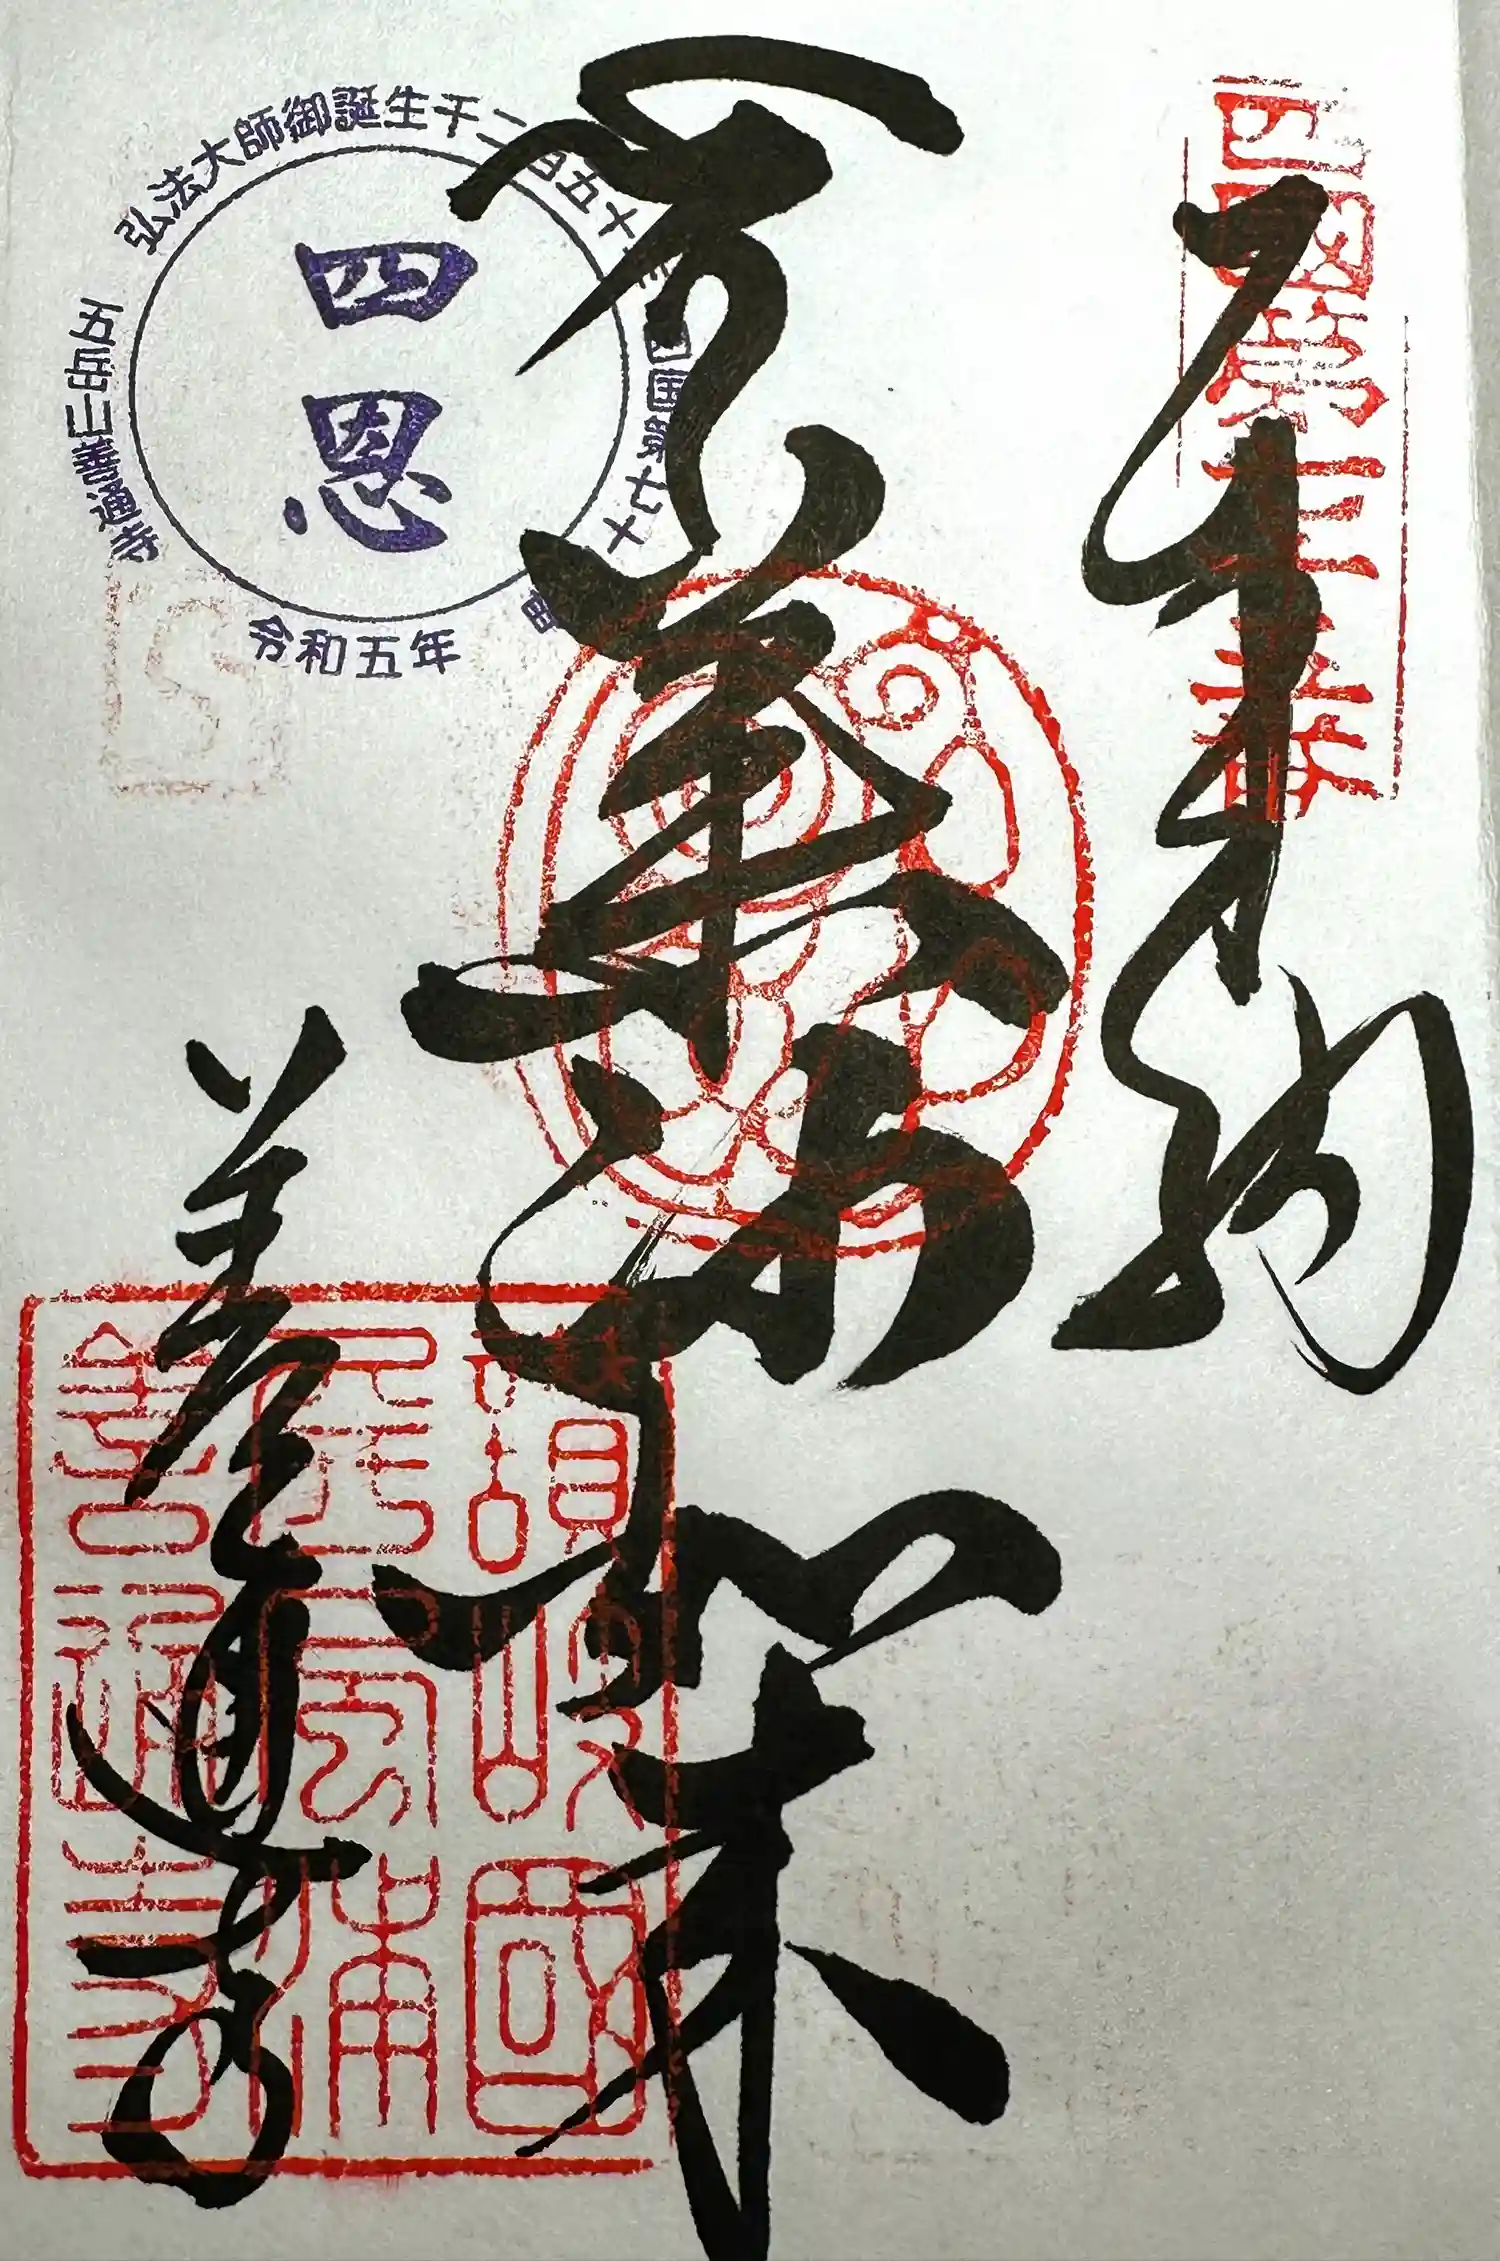 四國第七十五番
奉納
薬師如来
善通寺
弘法大師御誕生千二百五十年
四国第七十五番
五岳山善通寺
四恩
令和五年
讃岐國
屏風浦
善通寺